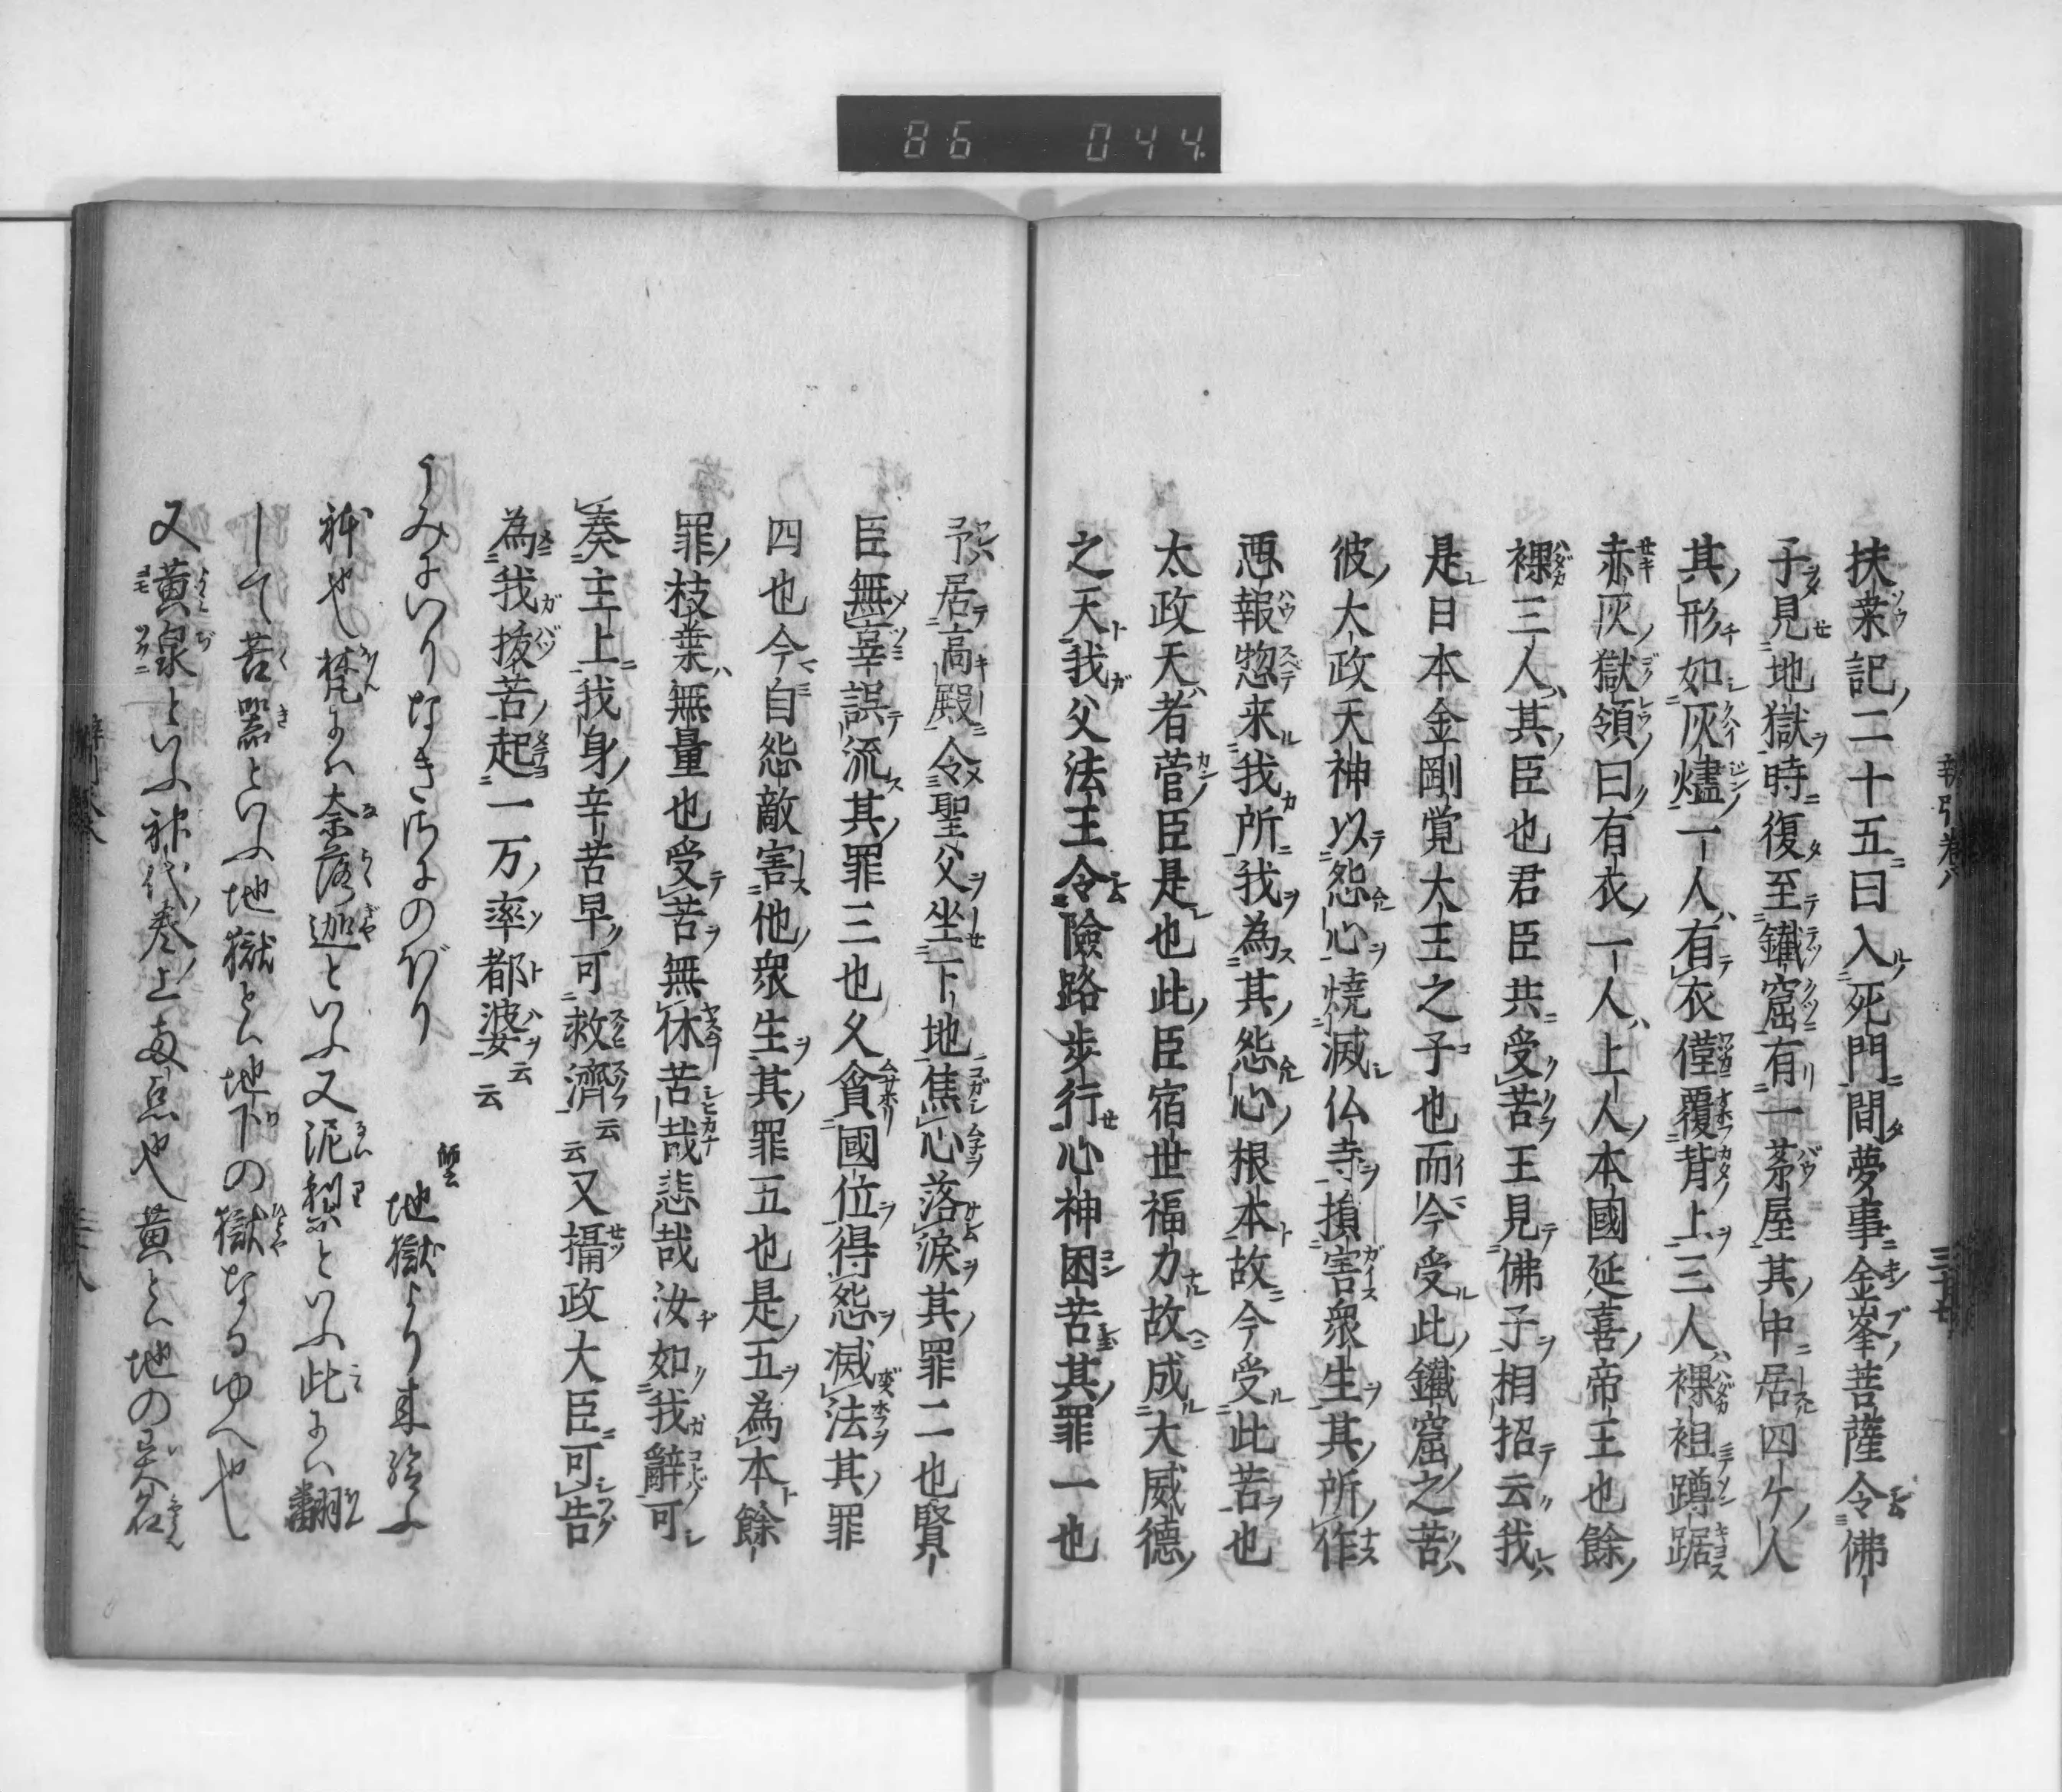 86 044
扶桒記二十五曰入死門間夢事金峯菩薩令佛
子見地獄時復至鐵窟有一茅屋其中居四ケ人
其形如灰燼一人有衣僅覆背上三人裸袒蹲踞
赤灰獄領曰有衣一人上人本國延喜帝王也餘
裸三人其臣也君臣共受苦王見佛子相招云我
是日本金剛覚大王之子也而今受此鐵窟之苦
彼大政天神以怨心焼滅仏寺損害衆生其所作
悪報惣来我所我為其怨心根本故今受此苦也
太政天者菅臣是也此臣宿世福力故成大威徳
之天我父法王令險路歩行心神困苦其罪一也
予居高殿令聖父坐下地焦心落涙其罪二也賢
臣無辜誤流其罪三也久貪國位得怨滅法其罪
四也今自怨敵害他衆生其罪五也是五為本餘
罪枝葉無量也受苦無休苦哉悲哉汝如我辭可
奏主上我身辛苦早可救濟云云又攝政大臣可告
為我抜苦起一万率都波云云
うみにいりなきさにのぼり 師云 地獄より来給ふ
神也梵には奈落迦といふ又泥梨といふ此には翻
して苦器といふ地獄とは地下の獄なるゆへ也
又黄泉といふ神代巻上